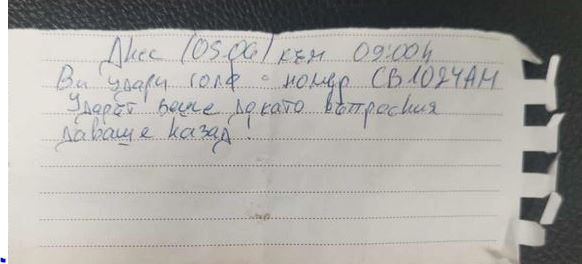 Днес (05.06) към 09:00ч
Ви удари голф - номер СВ1024АМ
Ударът беше докато въпросния
даваше назад!